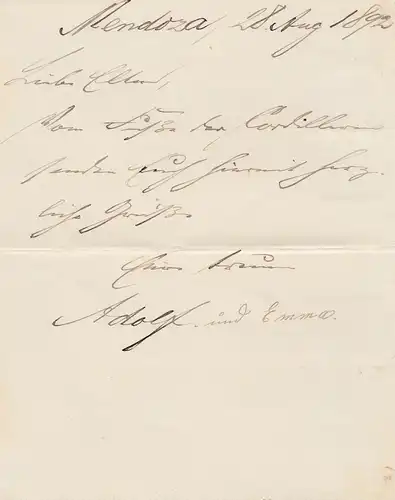 Mendoza, 28 Aug 1892
Liebe Eltern,
Vom Fuße der Cordilleren
senden Euch hiermit herz-
liche Grüße
Eure treuen
Adolf und Emma.